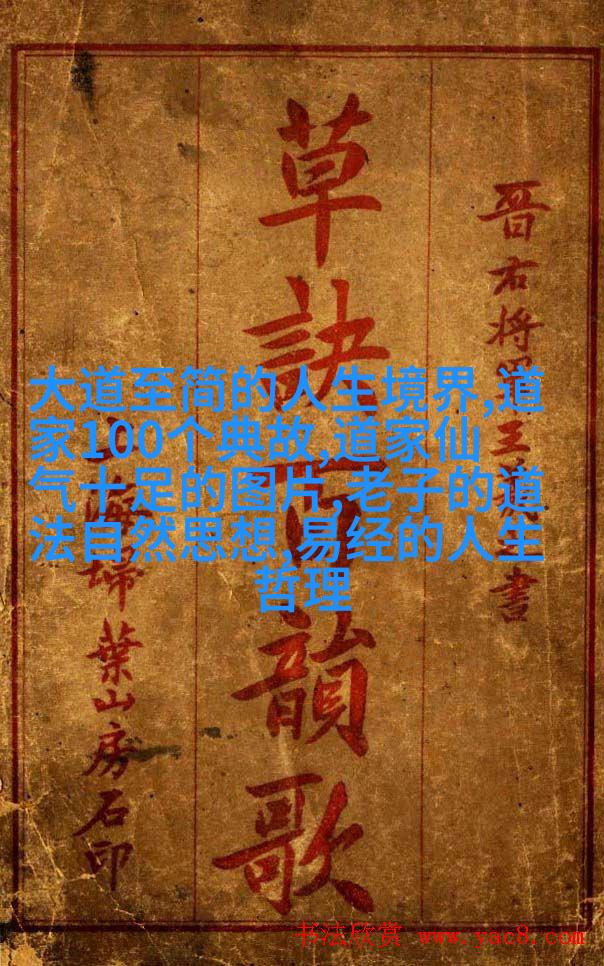 晉右將軍王羲之書
草訣百韻歌
上海掃葉山房石印
大道至简的人生境界,道
家100个典故,道家仙
气十足的图片,老子的道
法自然思想,易经的人生
哲理
书法欣赏 www.yac8.com